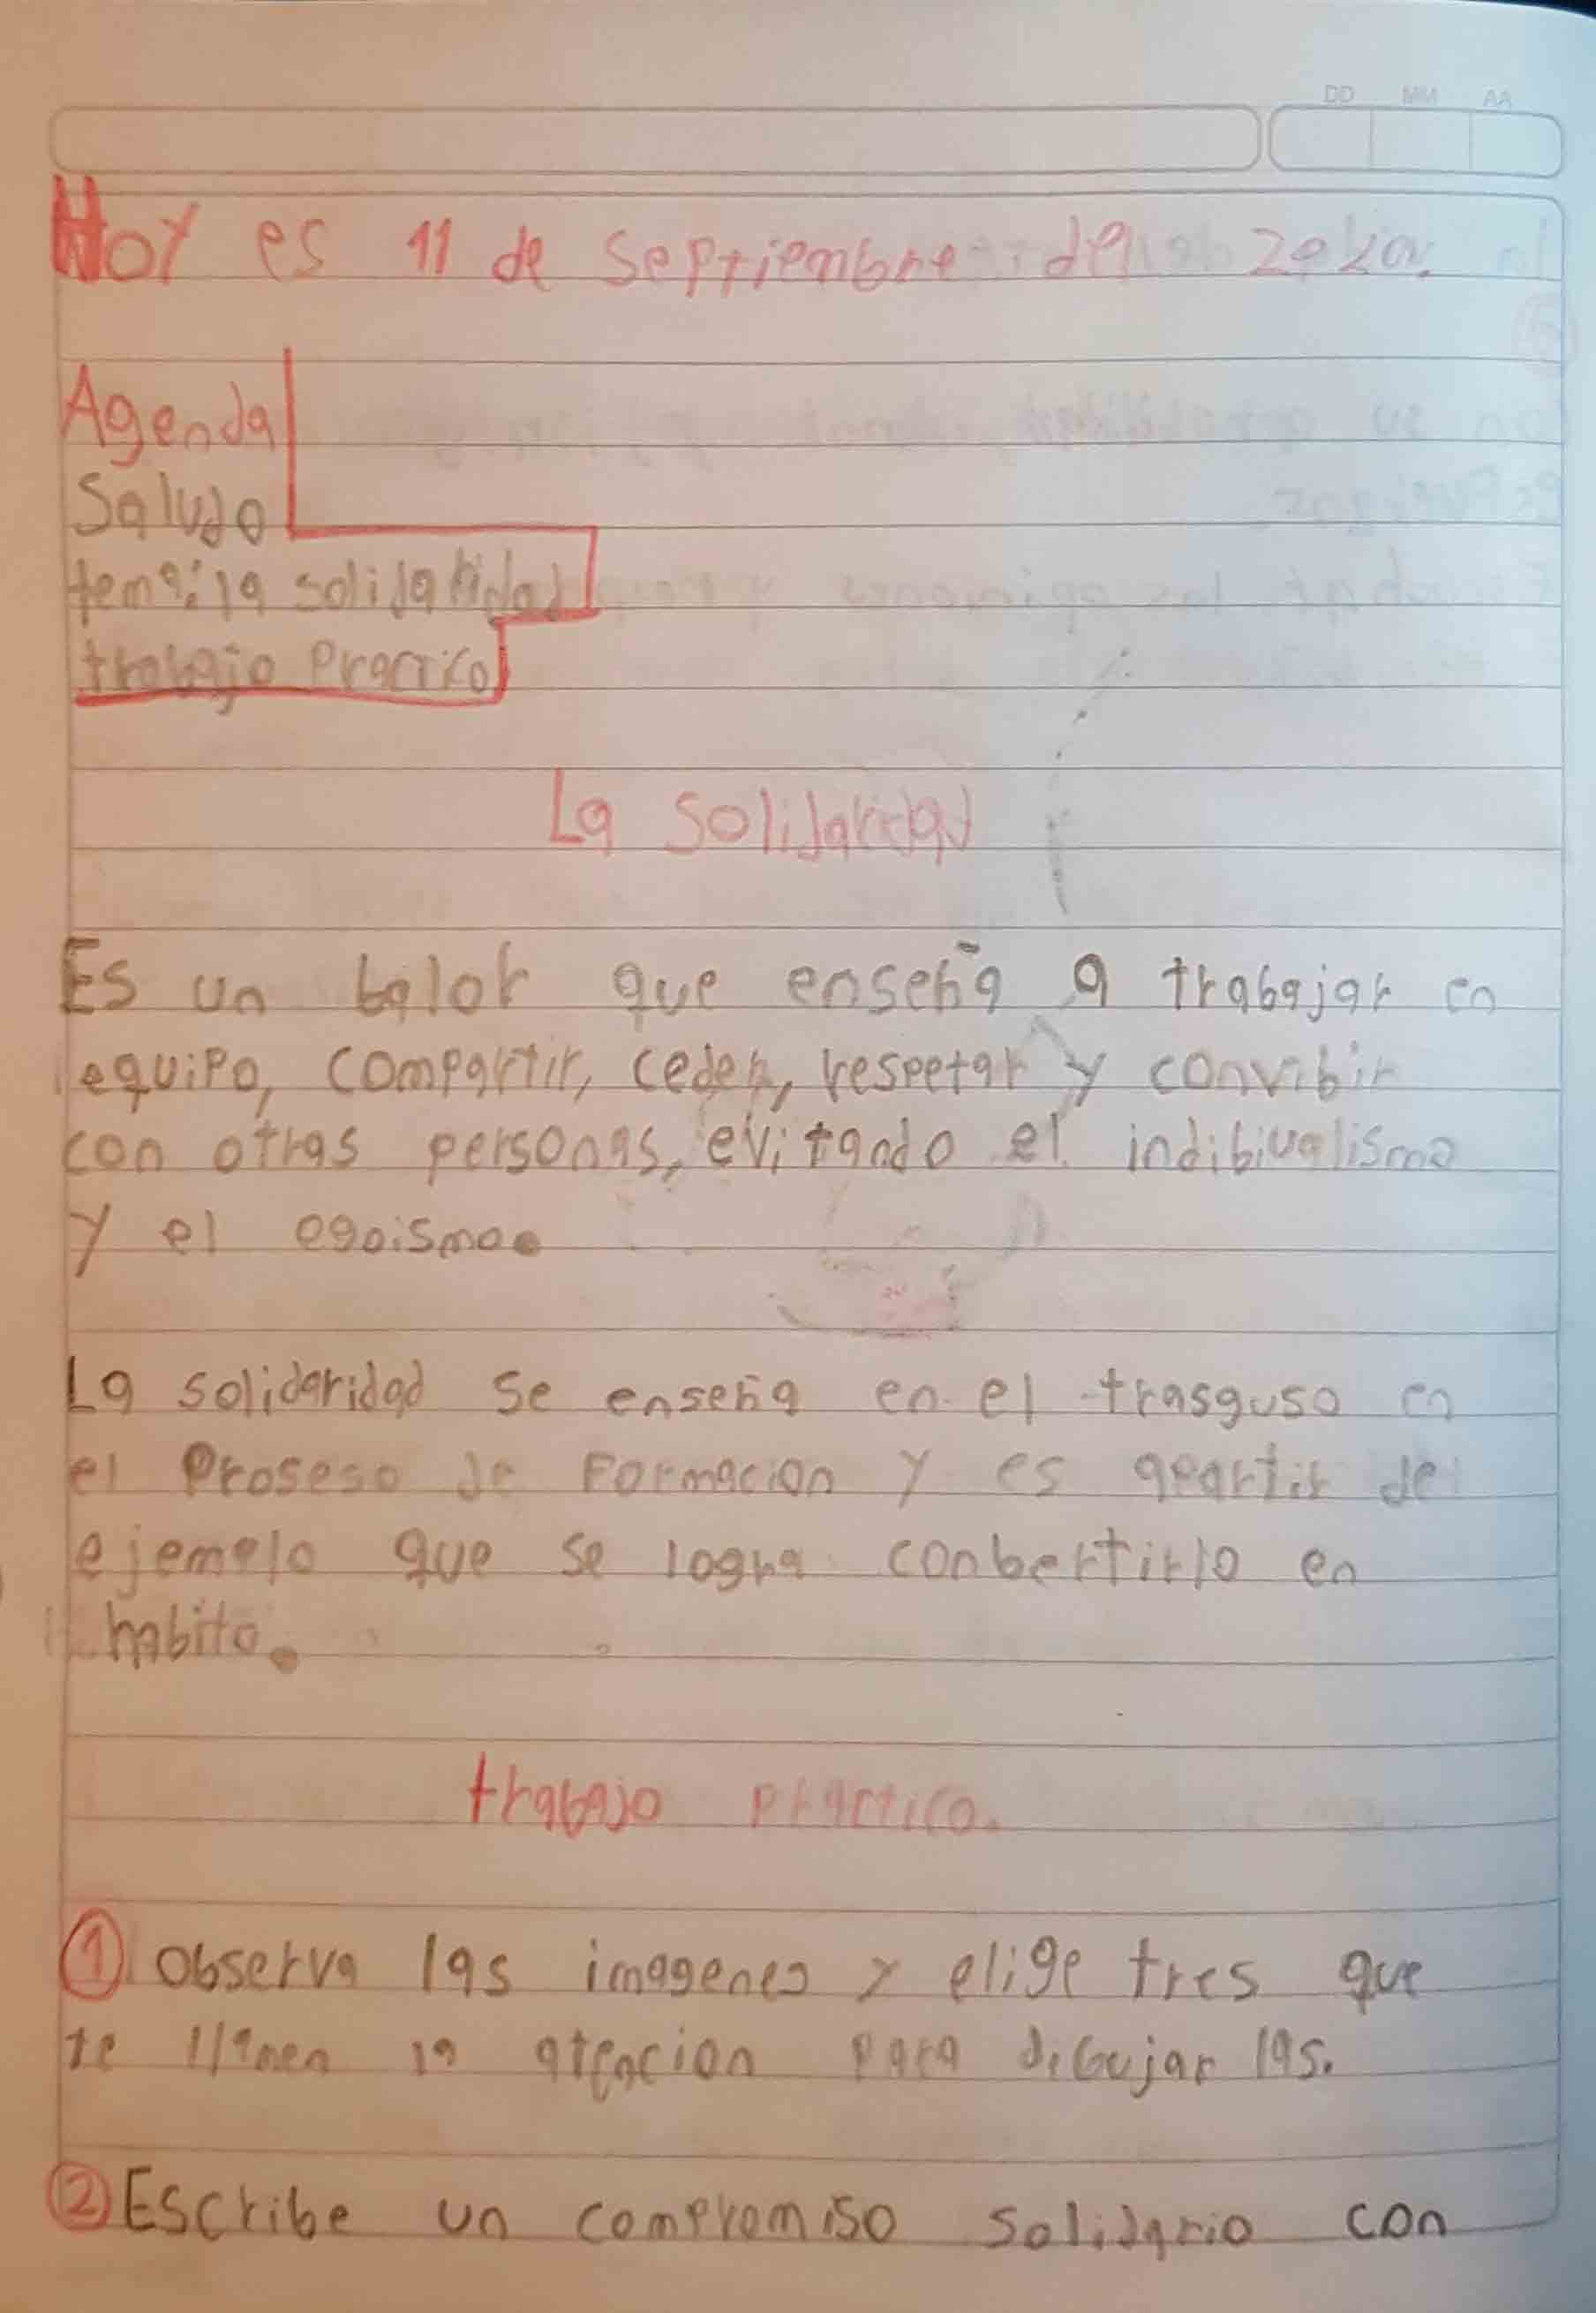 DD MM AA
Hoy es 11 de septiembre del
Agenda
Saludo
tema: la solidaridad
trabajo practico
La solidaridad
Es un balor que enseña a trabajar en
equipo, compartir, ceder, respetar y convibir
con otras personas, evitando el indibiualismo
y el egoismo.
La solidaridad se enseña en el trasguso en
el proseso de Formacion y es apartir del
ejemplo que se logra conbertirlo en
habito.
trabajo practico.
1 observa las imagenes y elige tres que
te llamen la atencion para dibujar las.
2 Escribe un compromiso solidario con